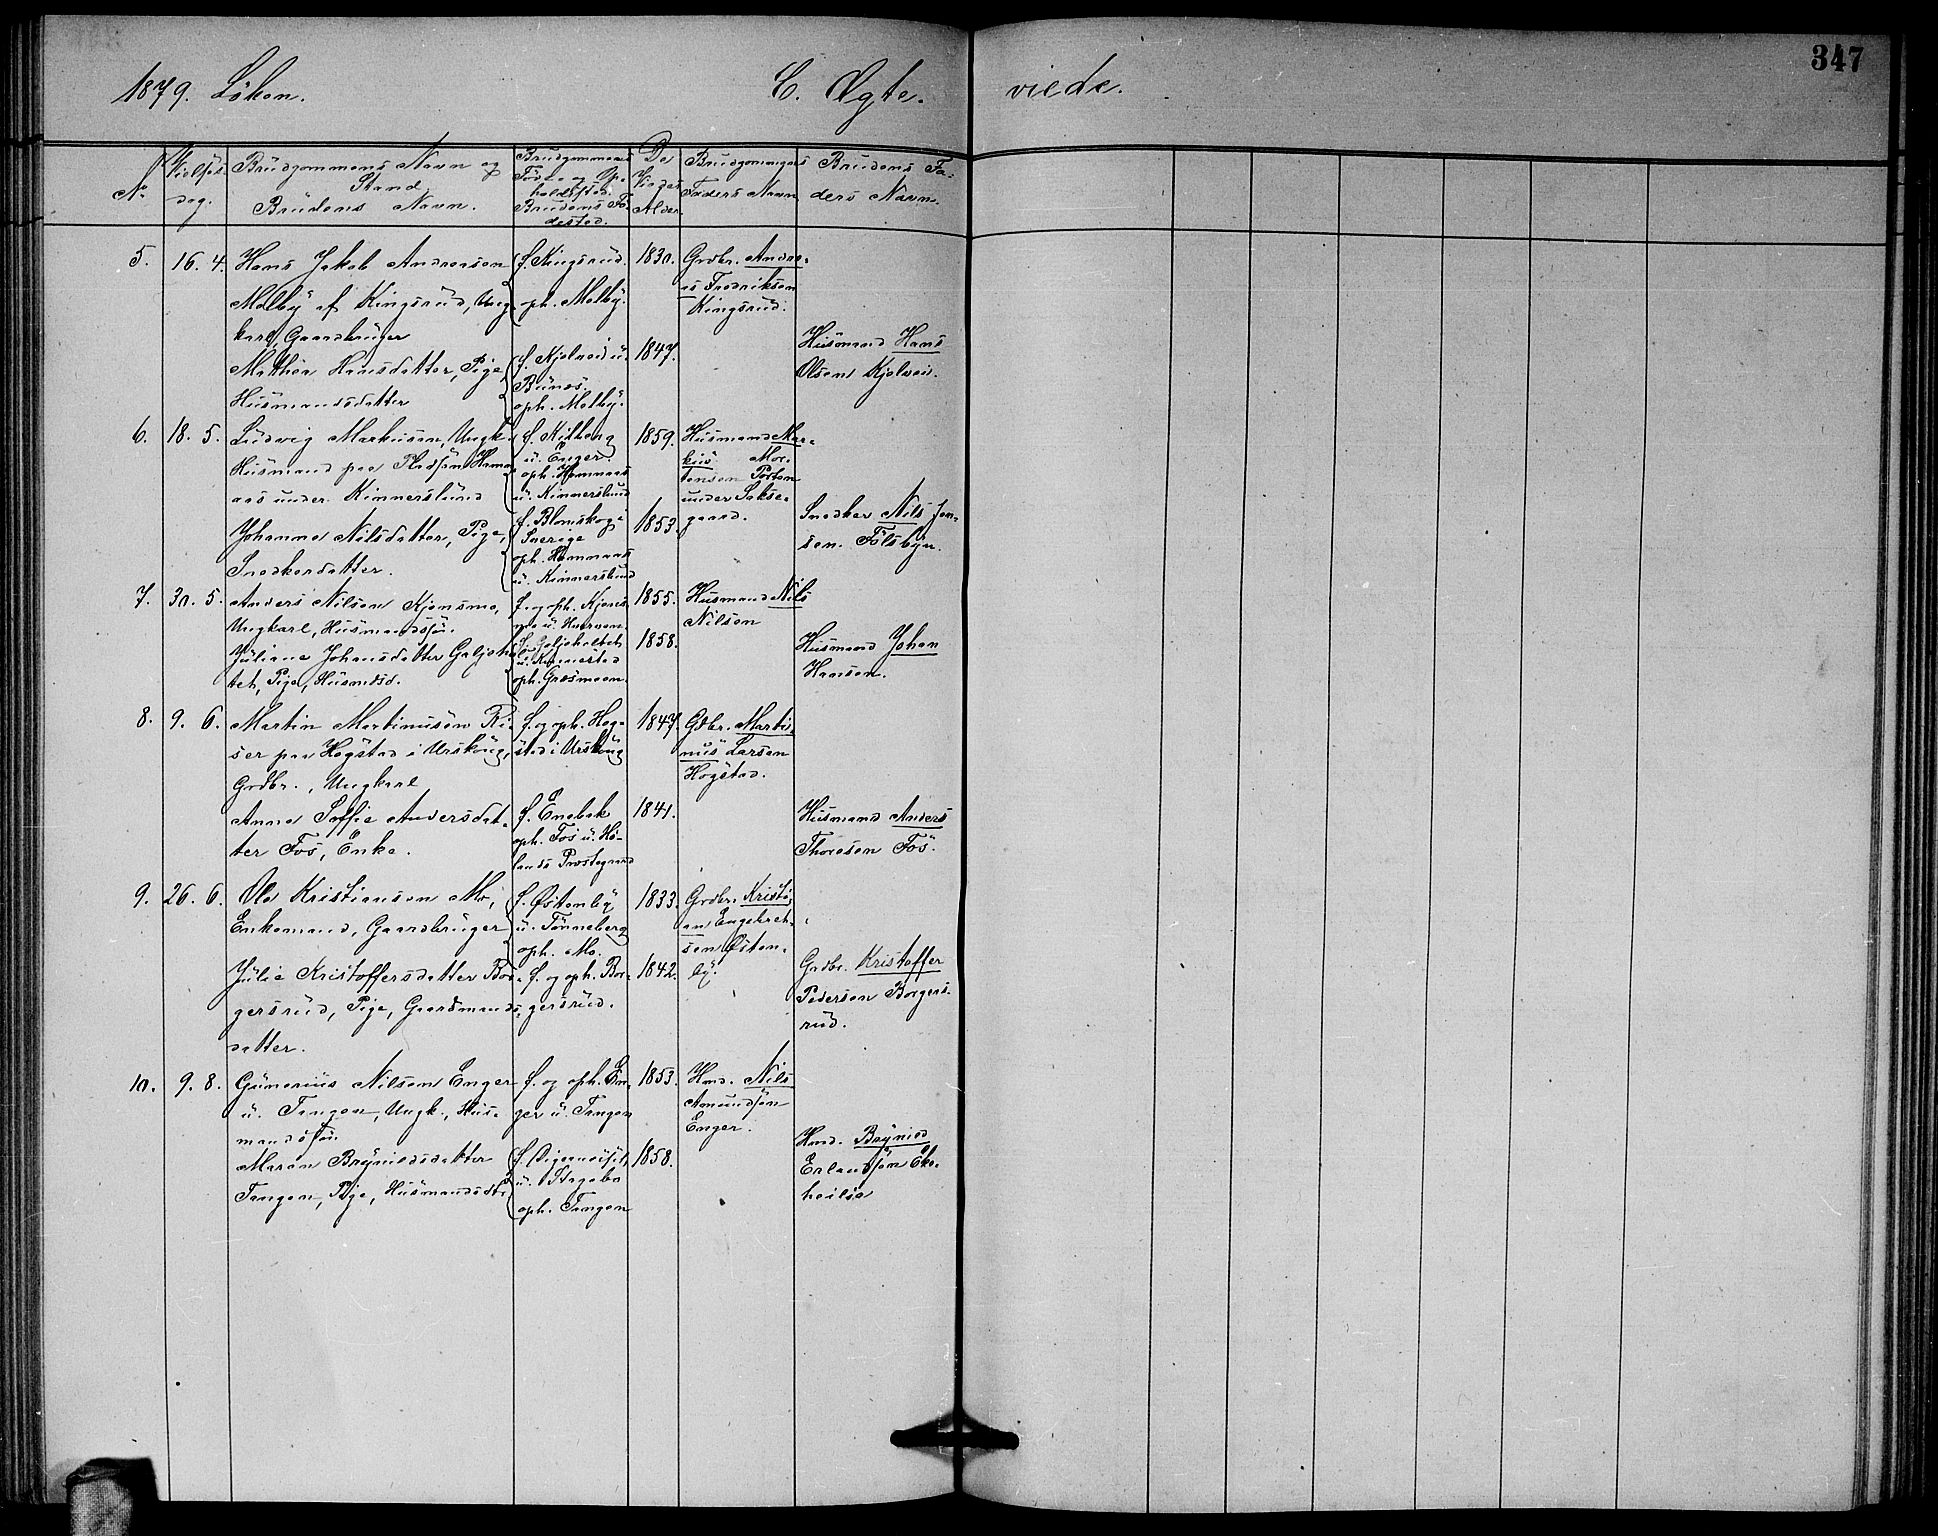 347
1879. Löken. C. Ægte- viede.
No
Vielses dag.
Brudgommens Navn og Stand
Brudens Navn.
Brudgommens Föde og Opholdssted.
Brudens Födested.
De Viedes Alder.
Brudgommens Faders Navn
Brudens Faders Navn.
5. 16. 4. Hans Jakob Andreasen
Melby af Kingsrud, Ung
karl, Gaardbruger
f. Kingsrud.
oph. Melby.
1830.
Grdbr. Andre-
as Fredriksen
Kingsrud.
Mathea Hansdatter, Pige
Husmandsdatter
f. Kjelvei u.
Bunes.
oph. Melby.
1847.
Husmand Hans
Olsen Kjelvei.
6. 18. 5. Ludvig Markusen, Ungk.
Husmand paa Pladsen Ham-
aas under Kinnerslund
f. Kilberg
u. Enger.
oph. Hammaas
u. Kinnerslund
1859.
Husmand Mar-
kus Mor-
tensen Porten
under Sakse-
gaard.
Johanne Nilsdatter, Pige,
Snedkerdatter.
f. Blomskog i
Sverige
oph. Hammaas
u. Kinnerslund
1853.
Snedker Nils Jen-
sen. Fölsbyn.
7. 30. 5. Anders Nilsen Kjensmo,
Ungkarl, Husmandssön.
f. og oph. Kjens-
mo u.
1855.
Husmand Nils
Nilsen
Juliane Johansdatter Galjehol-
teh, Pige, Husmdsd.
f. Galjeholteh
u. Kinnestad
oph. Græsmoen.
1858.
Husmand Johan
Hansen.
8. 9. 6. Martin Martinusen Ri-
ser paa Hogstad i Urskoug,
Grdbr., Ungkarl
f. og oph. Hog-
stad i Urskoug
1847.
Gdbr. Marti-
nus Larsen
Hogstad.
Anne Soffie Andersdat-
ter Fos, Enke.
f. Enebak
oph. Fos u. Hö-
lands Prestegaard
1841.
Husmand Anders
Thoresen Fos.
9. 26. 6. Ole Kristiansen Mo,
Enkemand, Gaardbruger
f. Östenby
u. Tönneberg
oph. Mo.
1833.
Grdbr. Kristi-
an Engebret-
sen Östen-
by.
Julie Kristoffersdatter Bor-
gersrud, Pige, Gaardmands-
datter.
f. og oph. Bor-
gersrud.
1842.
Grdbr. Kristoffer
Pedersen Borgers-
rud.
10. 9. 8. Gunerius Nilsen Enger
u. Tangen, Ungk., Hus-
mandssön
f. og oph. En-
ger u. Tangen
1853.
Hmd. Nils
Amundsön
Enger.
Maren Bryniedsdatter
Tangen, Pige, Husmandsdtr
u.
oph. Tangen
1858.
Hmd. Brynied
Erlandsön Eke-
heilie